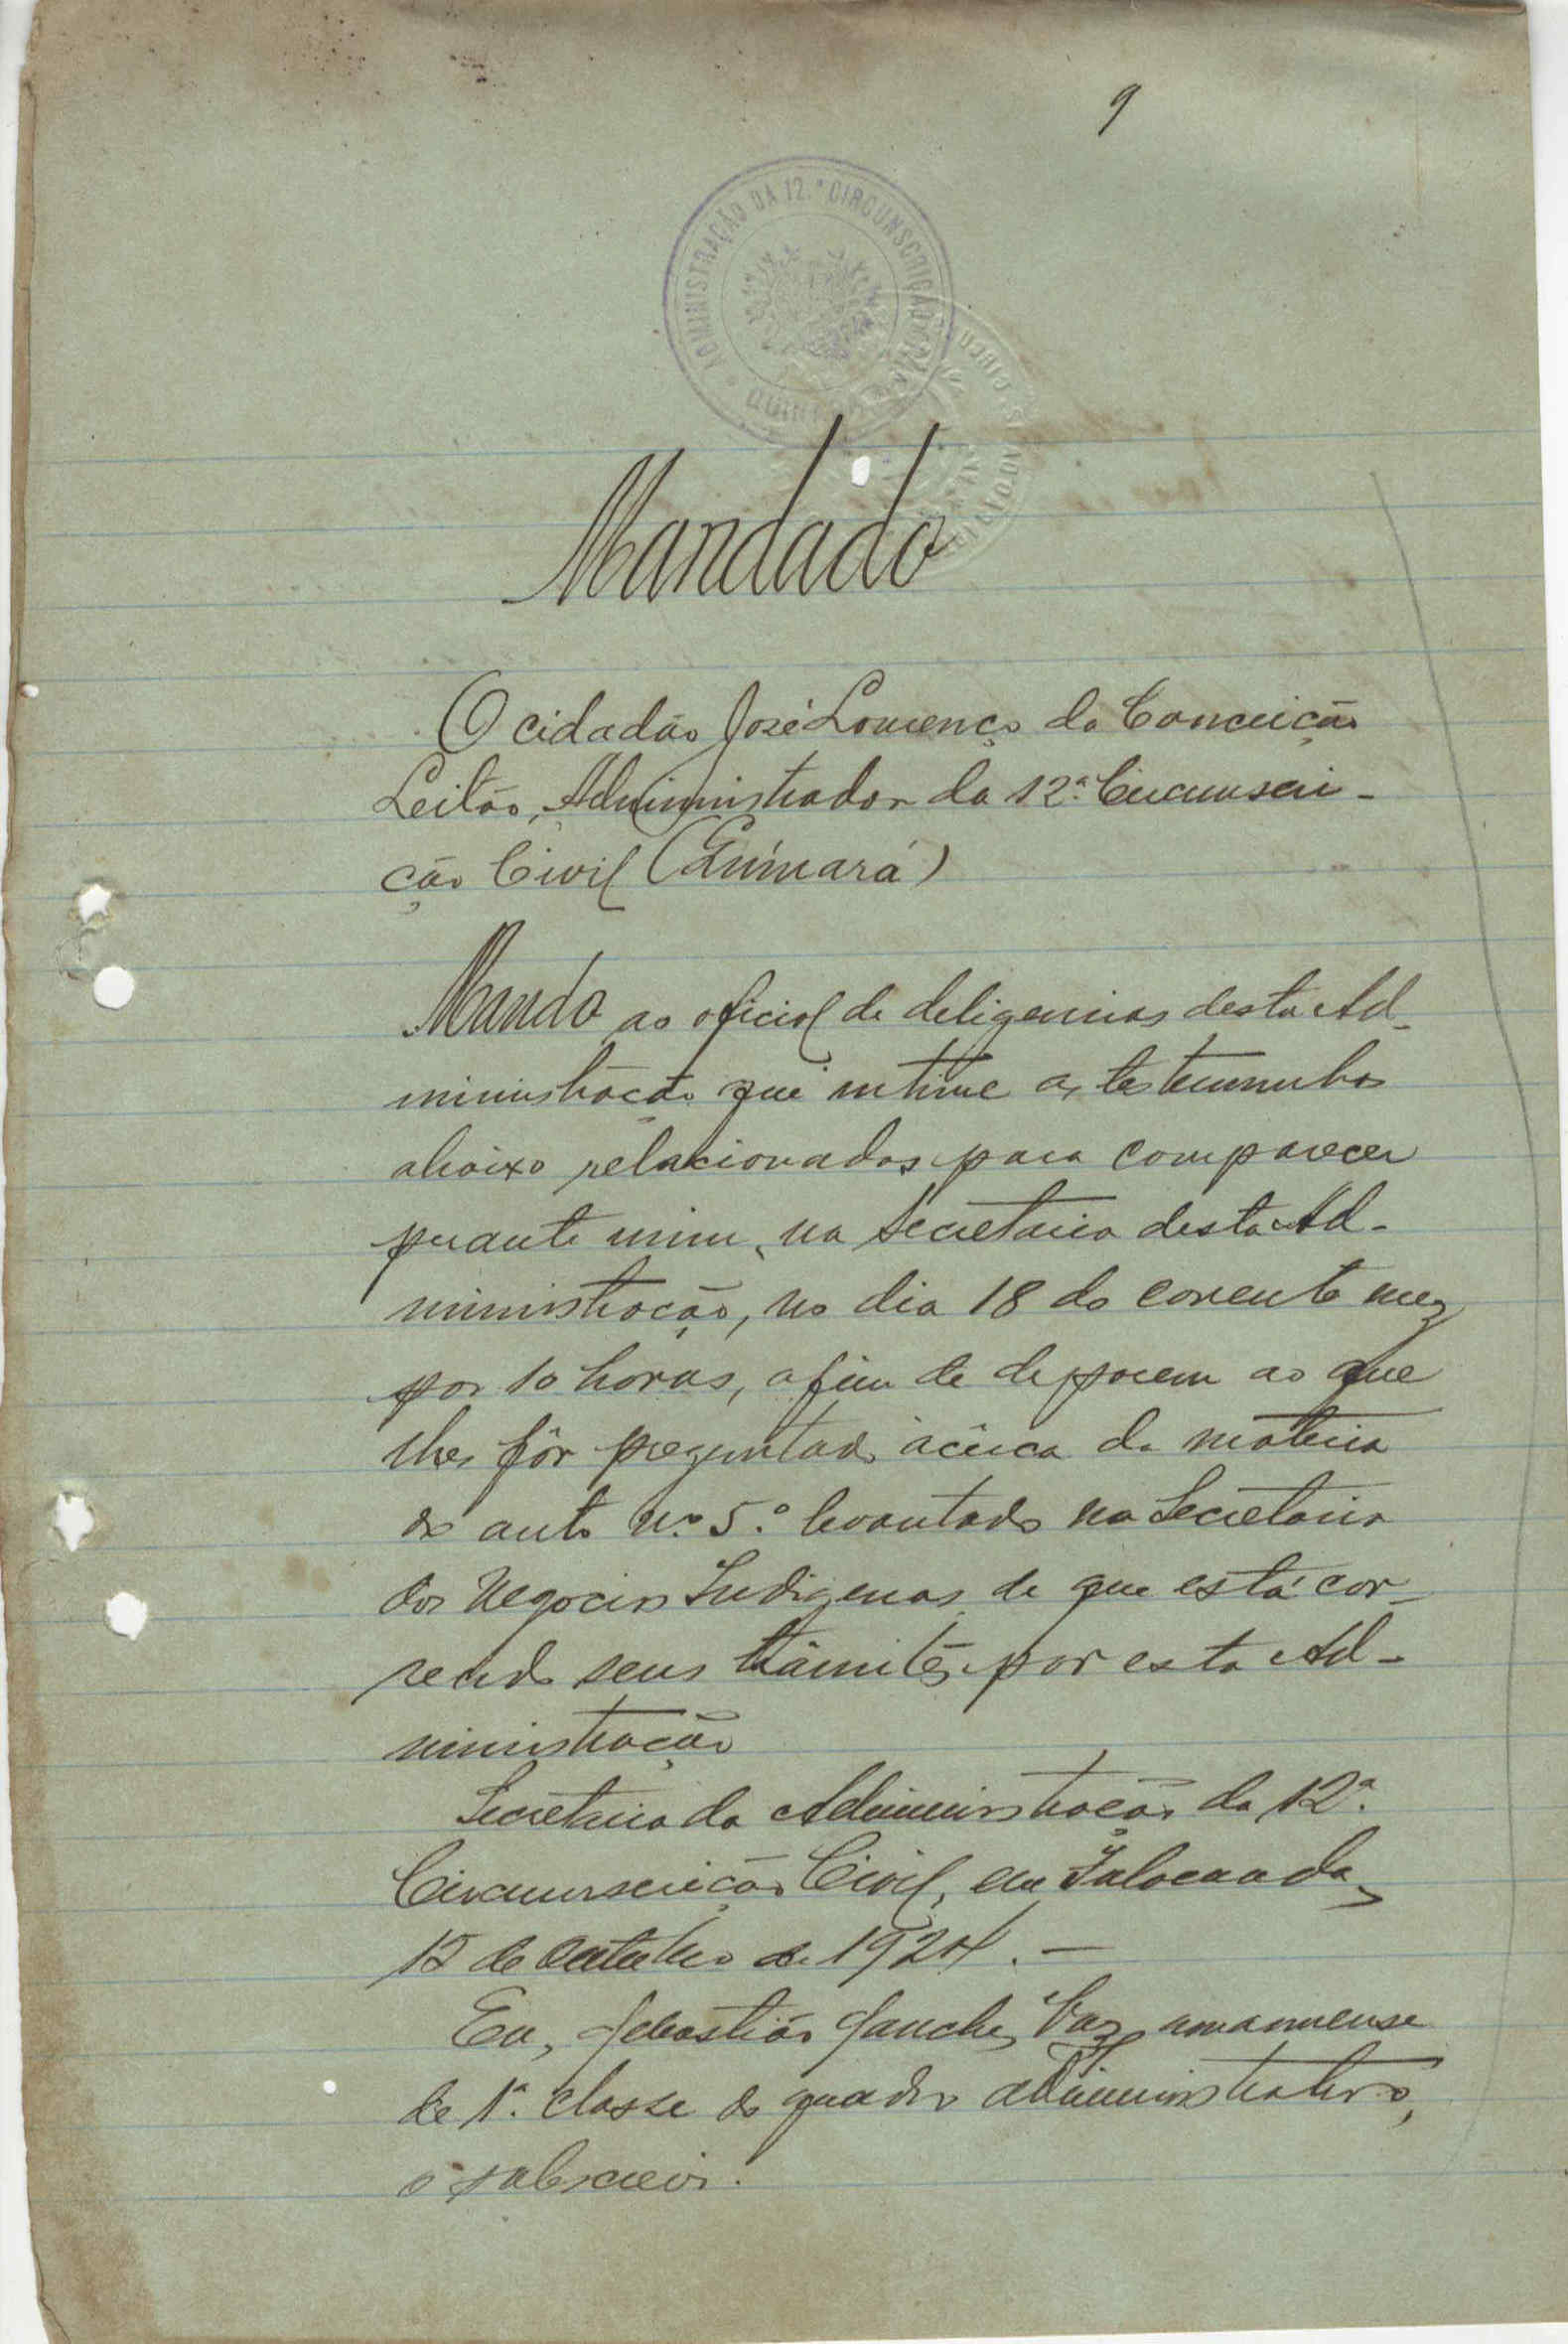 9
ADMINISTRAÇÃO DA 12.ª CIRCUNSCRIÇÃO CIVIL
Mandado
O cidadão José Lourenço da Conceição
Leitão, Administrador da 12ª. Circunscri-
ção Civil
Mando ao oficial de deligencias desta Ad-
ministração que intime as testemunhas
abaixo relacionadas para comparecer
perante mim, na Secretaria desta Ad-
ministração, no dia 18 do corrente mez
por 10 horas, afim de deporem ao que
lhes fôr preguntado àcerca da materia
do auto nº 5.º levantado na Secretaria
dos Negocios Indigenas de que está cor-
rendo seus trâmites por esta Ad-
ministração
Secretaria da Administração da 12ª.
Circunscrição Civil, em
de Outubro de 1924. —
Eu, Sebastião Sanches Vaz, amanuense
de 1ª. classe do quadro administrativo,
o subscrevi.